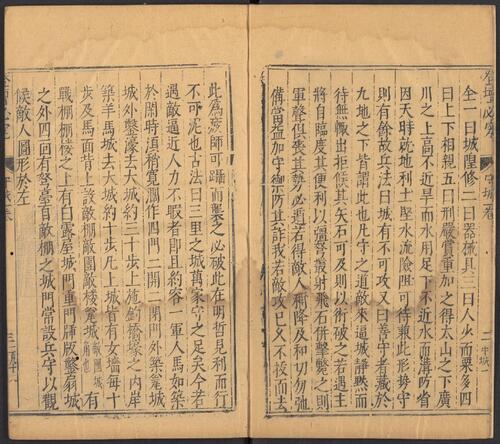 全一曰城隍修二曰器械具三曰人少而粟多四
曰上下相親五曰刑嚴賞重加之得太山之下廣
川之上高不近旱而水用足下不近水而溝防省
因天時就地利土堅水流險阻可恃兼此形勢守
則有餘故兵法曰城有不可攻又曰善守者藏於
九地之下皆謂此也凡守之道敵來逼城靜默而
待無輒出拒候其矢石可及則以術破之若遇主
將自臨度其便利以強弩叢射飛石併擊斃之則
軍聲阻喪其勢必遁若得敵人稱降及和切勿弛
備當益加守禦防其詐我若敵攻已久不拔而去
此為疲師可躡而襲之必破此在明哲見利而行
不可泥也古法曰三里之城萬家守之足矣今者
遇敵逼近人力不暇者即且約容一軍人馬如築
於閒時須稍寬濶作四門二開二閉門外築甕城
城外鑿濠去大城約三十步上施釣橋濠之内岸
築羊馬城去大城約十步凡上城皆有女墻每十
步及馬面皆上設敵棚敵團敵樓甕城敵團城角也有
戰棚棚樓之上有白露屋城門重門牐版鑿扇城
之外四面有弩臺自敵棚之城門常設兵守以觀
候敵人圖形於左